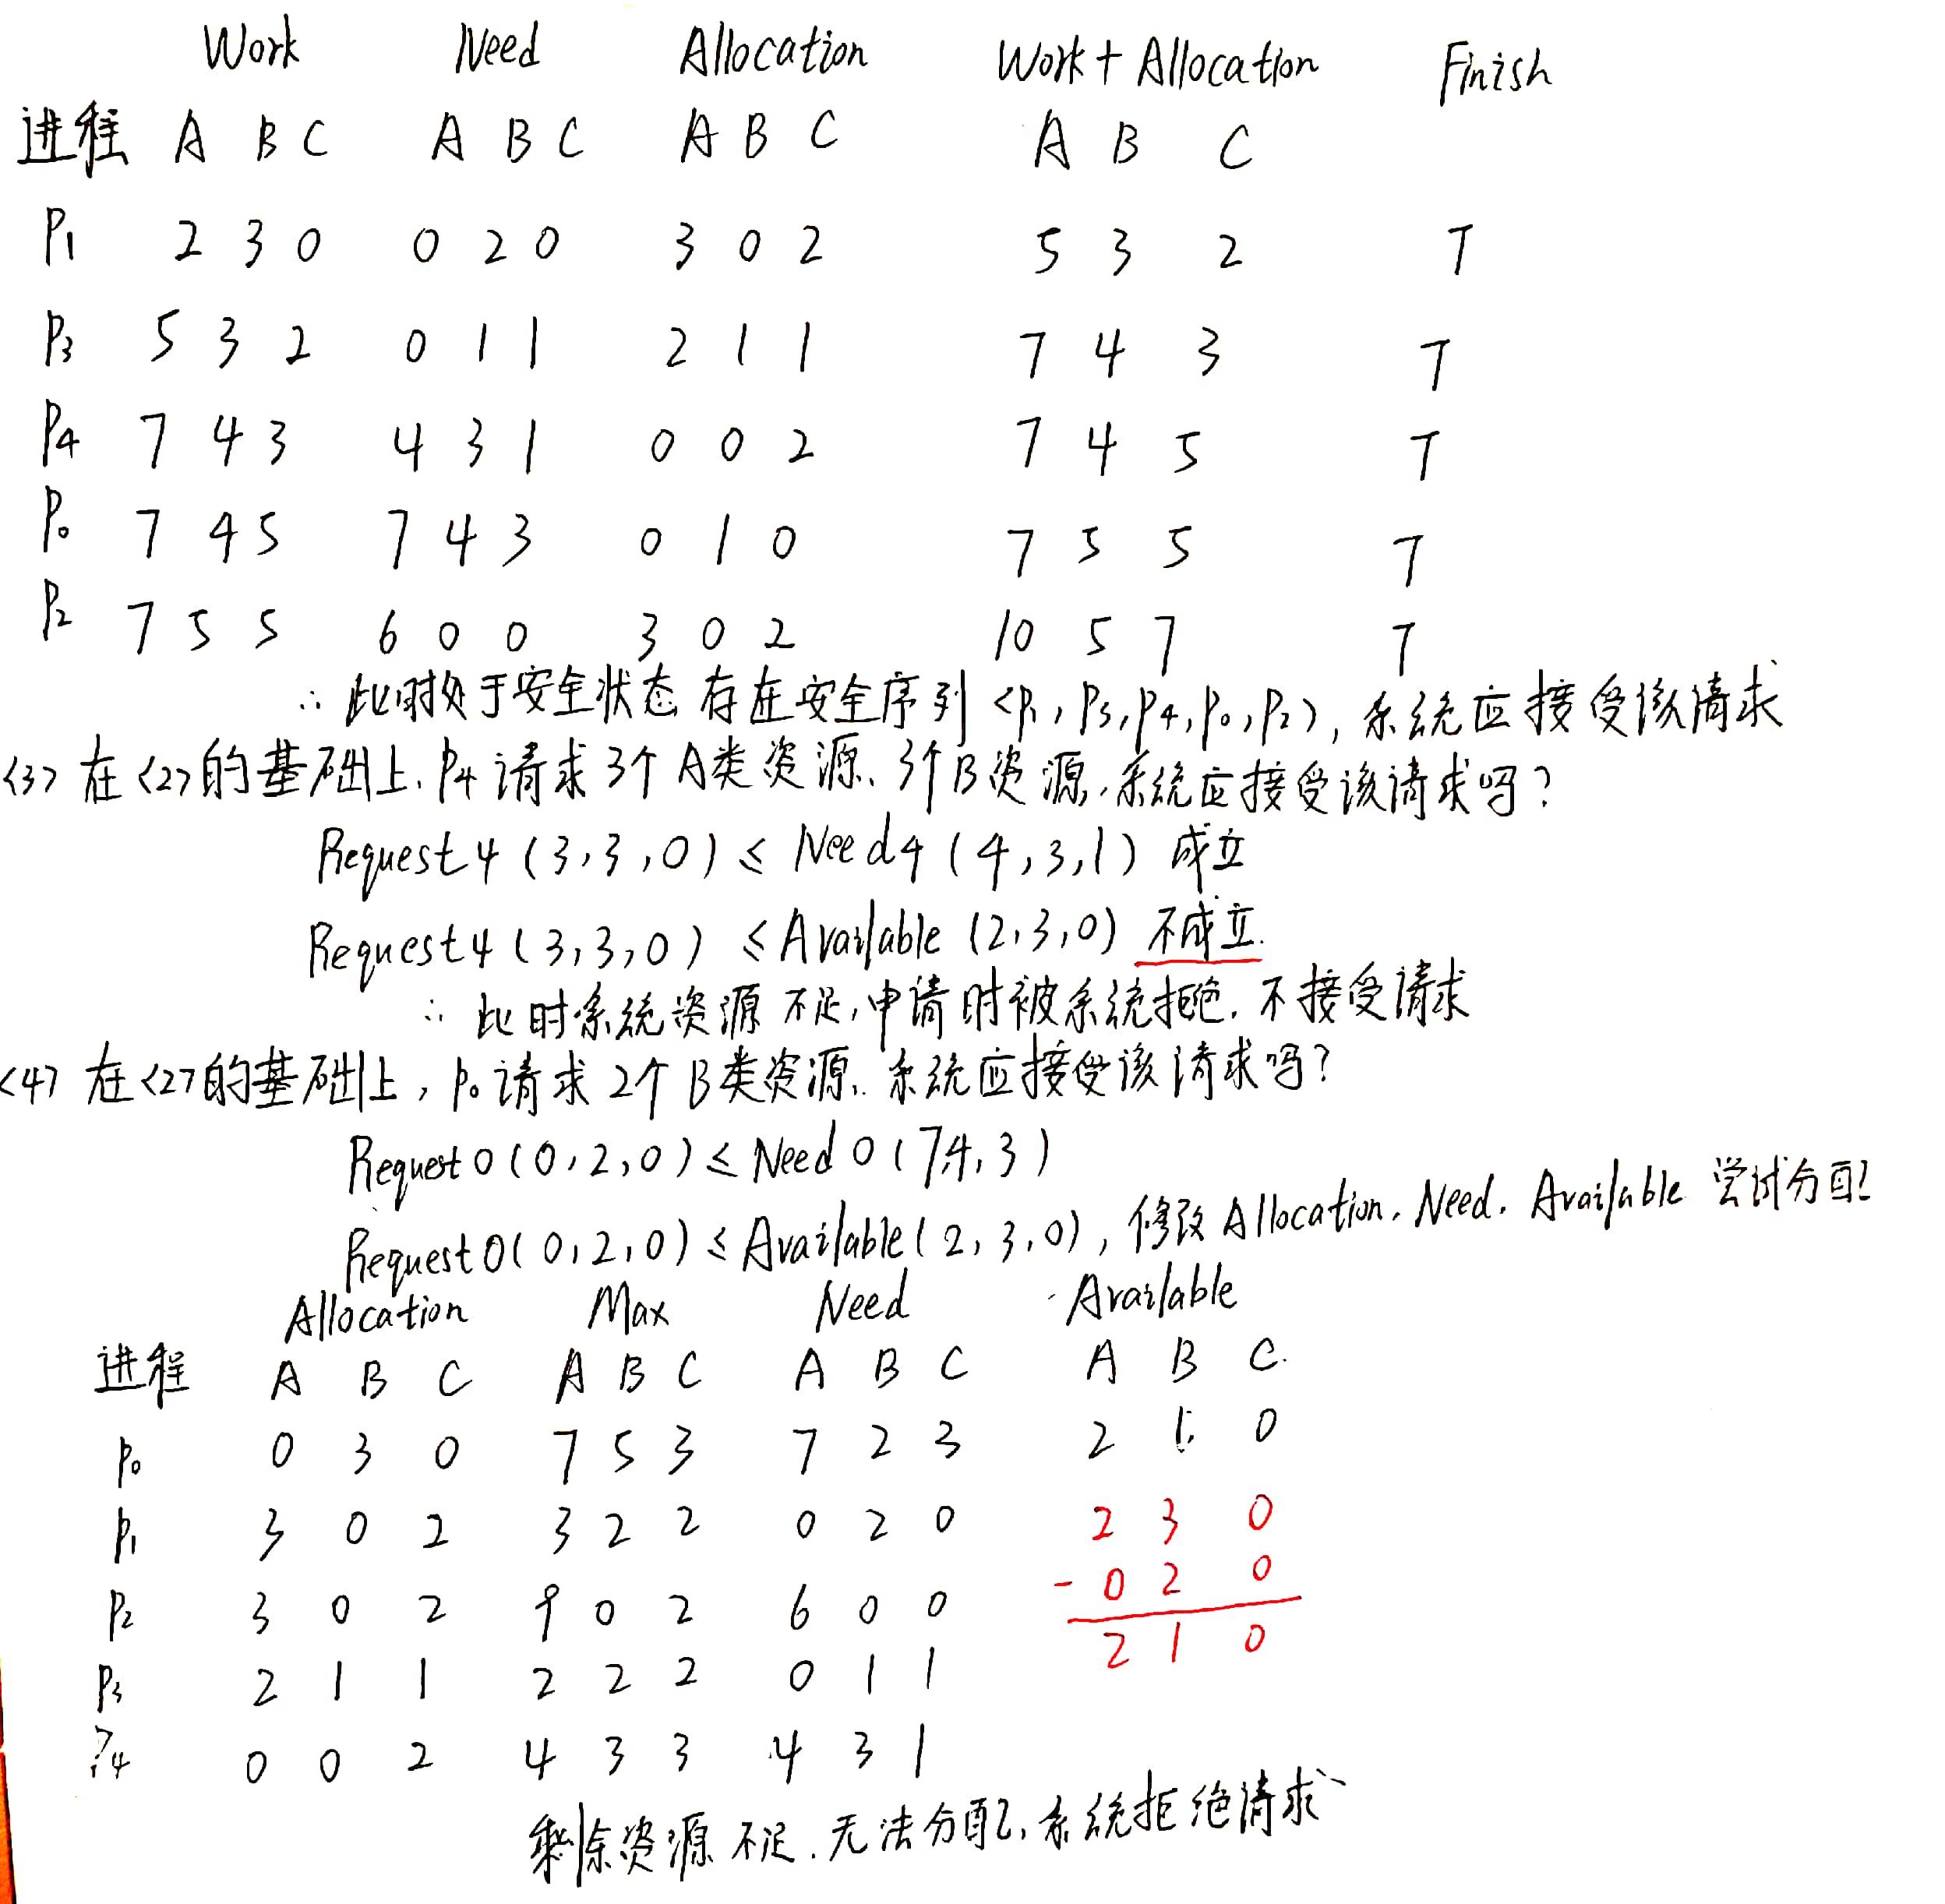 Work Need Allocation Work+Allocation Finish
进程 A B C A B C A B C A B C
P1 2 3 0 0 2 0 3 0 2 5 3 2 T
P3 5 3 2 0 1 1 2 1 1 7 4 3 T
P4 7 4 3 4 3 1 0 0 2 7 4 5 T
P0 7 4 5 7 4 3 0 1 0 7 5 5 T
P2 7 5 5 6 0 0 3 0 2 10 5 7 T
∴ 此时处于安全状态 存在安全序列 <P1, P3, P4, P0, P2), 系统应接受该请求
<3> 在<2>的基础上, P4 请求 3个 A类资源、3个B类资源, 系统应接受该请求吗?
Request4 (3,3,0) ≤ Need4 (4,3,1) 成立
Request4 (3,3,0) ≤ Available (2,3,0) 不成立.
∴ 此时系统资源不足, 申请时被系统拒绝, 不接受请求
<4> 在<2>的基础上, P0 请求 2个 B类资源. 系统应接受该请求吗?
Request0 (0,2,0) ≤ Need0 (7,4,3)
Request0 (0,2,0) ≤ Available (2,3,0), 修改 Allocation, Need, Available 尝试分配
Allocation Max Need Available
进程 A B C A B C A B C A B C
P0 0 3 0 7 5 3 7 2 3 2 1 0
P1 3 0 2 3 2 2 0 2 0 2 3 0
P2 3 0 2 9 0 2 6 0 0 - 0 2 0
P3 2 1 1 2 2 2 0 1 1 2 1 0
P4 0 0 2 4 3 3 4 3 1
剩余资源不足, 无法分配, 系统拒绝请求